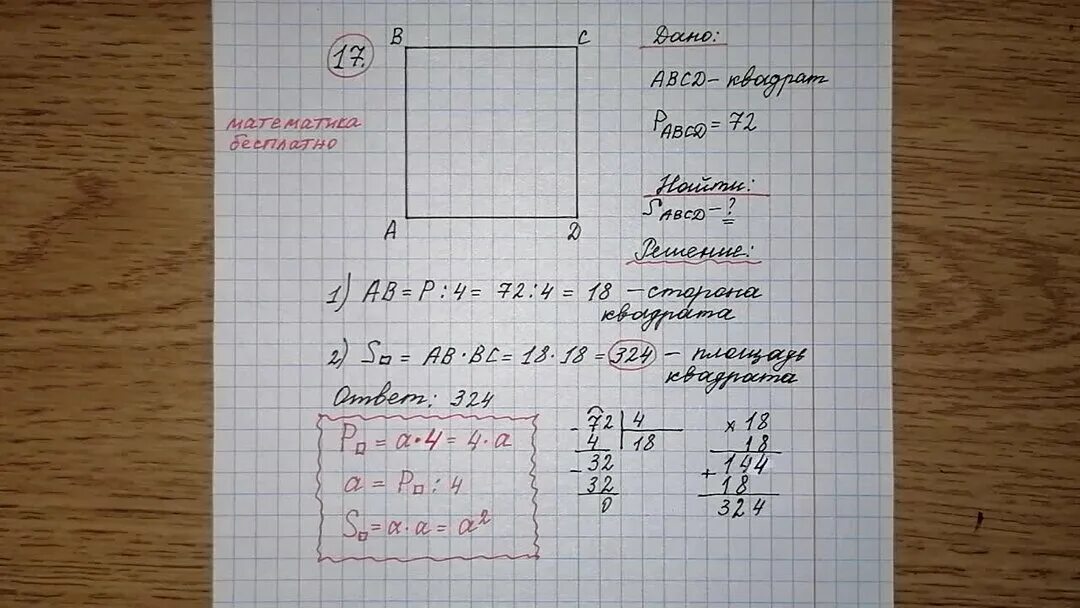 17.
B
C
A
D
математика
бесплатно
Дано:
ABCD – квадрат
P ABCD = 72
Найти:
S ABCD – ?
Решение:
1) AB = P : 4 = 72 : 4 = 18 – сторона
квадрата
2) S□ = AB · BC = 18 · 18 = 324 – площадь
квадрата
Ответ: 324
P□ = a · 4 = 4 · a
a = P□ : 4
S□ = a · a = a²
- 72 | 4
4 | 18
- 32
32
0
× 18
18
+ 144
18
324